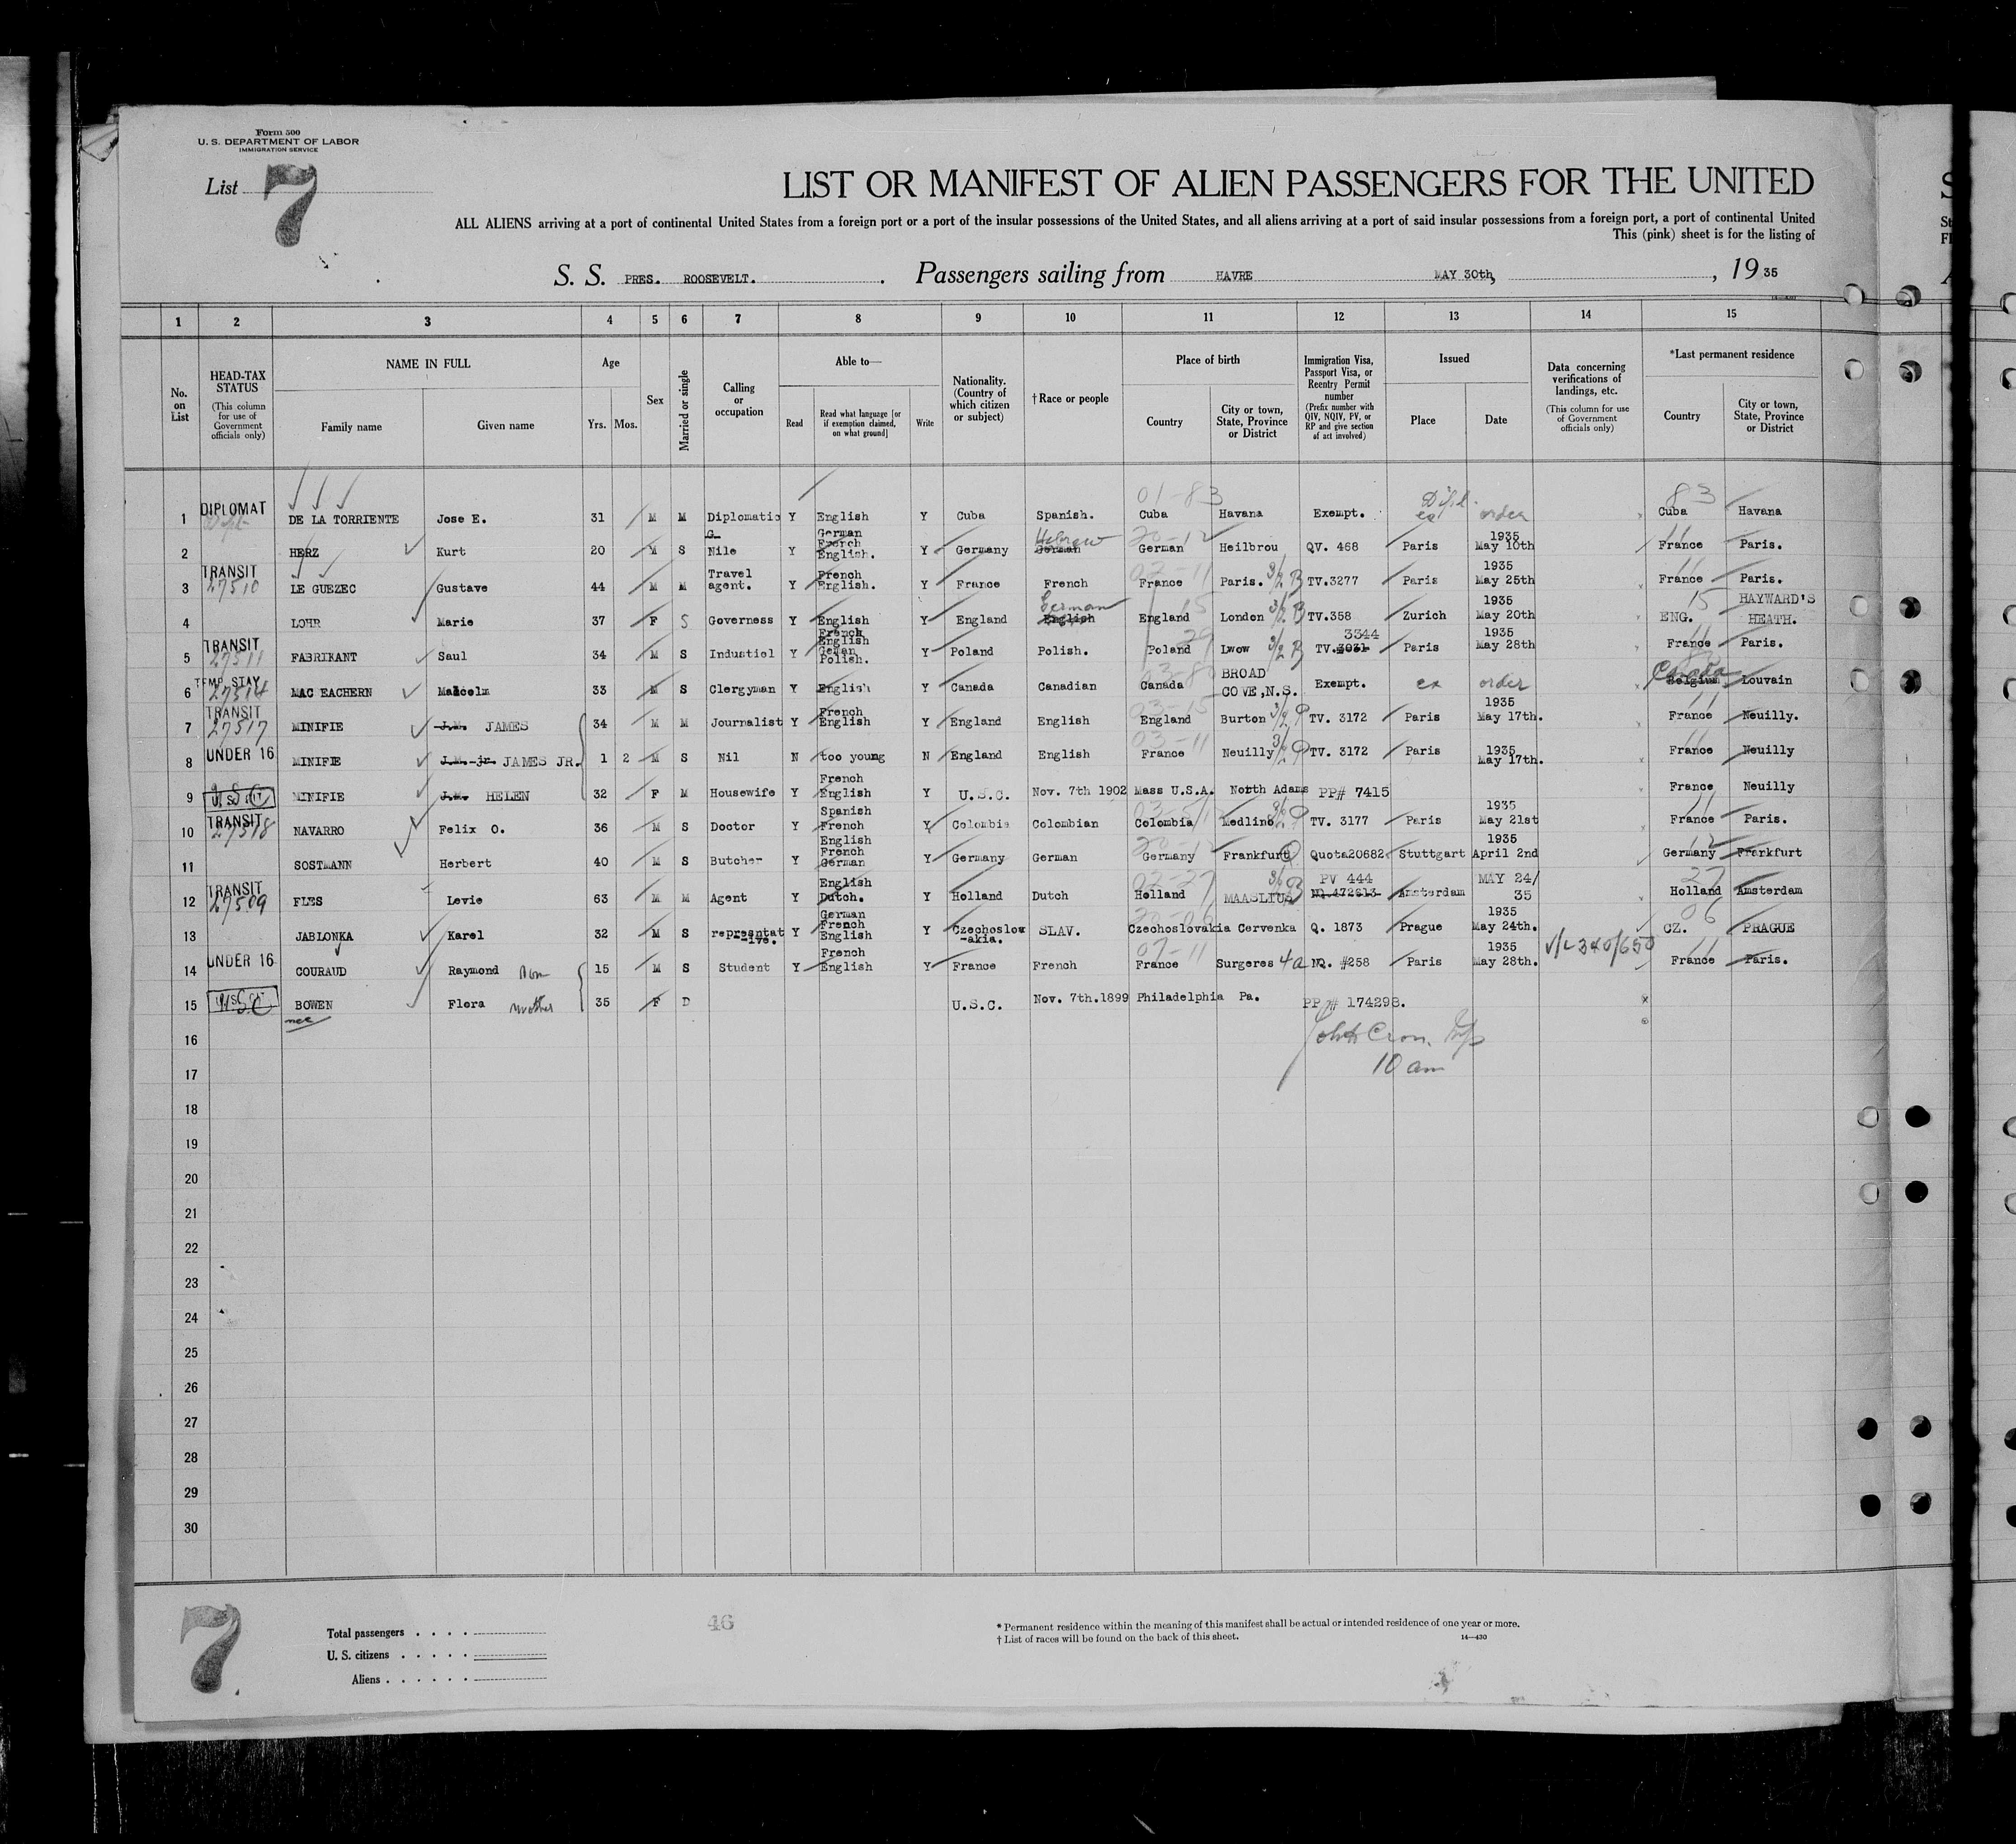 Form 500
U. S. DEPARTMENT OF LABOR
IMMIGRATION SERVICE
List 7
LIST OR MANIFEST OF ALIEN PASSENGERS FOR THE UNITED
ALL ALIENS arriving at a port of continental United States from a foreign port or a port of the insular possessions of the United States, and all aliens arriving at a port of said insular possessions from a foreign port, a port of continental United
This (pink) sheet is for the listing of
S. S. PRES. ROOSEVELT. Passengers sailing from HAVRE MAY 30th, , 19 35
1 2 3 4 5 6 7 8 9 10 11 12 13 14 15
No. on List
HEAD-TAX STATUS (This column for use of Government officials only)
NAME IN FULL Family name Given name
Age Yrs. Mos.
Sex
Married or single
Calling or occupation
Able to— Read Read what language [or if exemption claimed, on what ground] Write
Nationality. (Country of which citizen or subject)
†Race or people
Place of birth Country City or town, State, Province or District
Immigration Visa, Passport Visa, or Reentry Permit number (Prefix number with QIV, NQIV, PV, or RP and give section of act involved)
Issued Place Date
Data concerning verifications of landings, etc. (This column for use of Government officials only)
*Last permanent residence Country City or town, State, Province or District
1 DIPLOMAT DE LA TORRIENTE Jose E. 31 M M Diplomatic Y English Y Cuba Spanish. 01-83 Cuba Havana Exempt. Dipl. ex order 83 Cuba Havana
2 HERZ Kurt 20 M S Nile Y German French English. Y Germany Hebrew German 20-12 German Heilbrou QV. 468 Paris 1935 May 10th 11 France Paris.
3 TRANSIT 27510 LE GUEZEC Gustave 44 M M Travel agent. Y French English. Y France French 02-11 France Paris. 3/2 B TV.3277 Paris 1935 May 25th 11 France Paris.
4 LOHR Marie 37 F S Governess Y English Y England German English 15 England London 3/2 B TV.358 Zurich 1935 May 20th 15 ENG. HAYWARD'S HEATH.
5 TRANSIT 27511 FABRIKANT Saul 34 M S Industiel Y French English Polish. Y Poland Polish. 29 Poland Lwow 3/2 B 3344 TV.3031 Paris 1935 May 28th 11 France Paris.
6 TEMP. STAY 27514 MAC EACHERN Malcolm 33 M S Clergyman Y English Y Canada Canadian 03-80 Canada BROAD COVE,N.S. Exempt. ex order Canada Belgium Louvain
7 TRANSIT 27517 MINIFIE J.M. JAMES 34 M M Journalist Y French English Y England English 03-15 England Burton 3/2 TV. 3172 Paris 1935 May 17th. 11 France Neuilly.
8 UNDER 16 MINIFIE J.M. jr. JAMES JR. 1 2 M S Nil N too young N England English 03-11 France Neuilly 3/2 TV. 3172 Paris 1935 May 17th. 11 France Neuilly
9 USC MINIFIE J.M. HELEN 32 F M Housewife Y French English Y U.S.C. Nov. 7th 1902 Mass U.S.A. North Adams PP# 7415 France Neuilly
10 TRANSIT 27518 NAVARRO Felix O. 36 M S Doctor Y Spanish French Y Colombia Colombian Colombia Medlino TV. 3177 Paris 1935 May 21st 11 France Paris.
11 SOSTMANN Herbert 40 M S Butcher Y English French German Y Germany German 20-12 Germany Frankfurt Quota20682 Stuttgart 1935 April 2nd 12 Germany Frankfurt
12 TRANSIT 27509 FLES Levie 63 M M Agent Y English Dutch. Y Holland Dutch 02-27 Holland MAASLIUS 3/2 B PV 444 NQ.472613 Amsterdam MAY 24/ 35 27 Holland Amsterdam
13 JABLONKA Karel 32 M S represntat -ive. Y German French English Y Czechoslow -akia. SLAV. 20-06 Czechoslovakia Cervenka Q. 1873 Prague 1935 May 24th. 06 CZ. PRAGUE
14 UNDER 16 COURAUD Raymond son 15 M S Student Y French English Y France French 07-11 France Surgeres 4a NQ. #258 Paris 1935 May 28th. V/L 340/650 11 France Paris.
15 USC BOWEN Flora mother 35 F D U.S.C. Nov. 7th.1899 Philadelphia Pa. PP # 174298.
nee
16
10 am
17
18
19
20
21
22
23
24
25
26
27
28
29
30
7
Total passengers
U. S. citizens
Aliens
46
* Permanent residence within the meaning of this manifest shall be actual or intended residence of one year or more.
† List of races will be found on the back of this sheet.
14—430